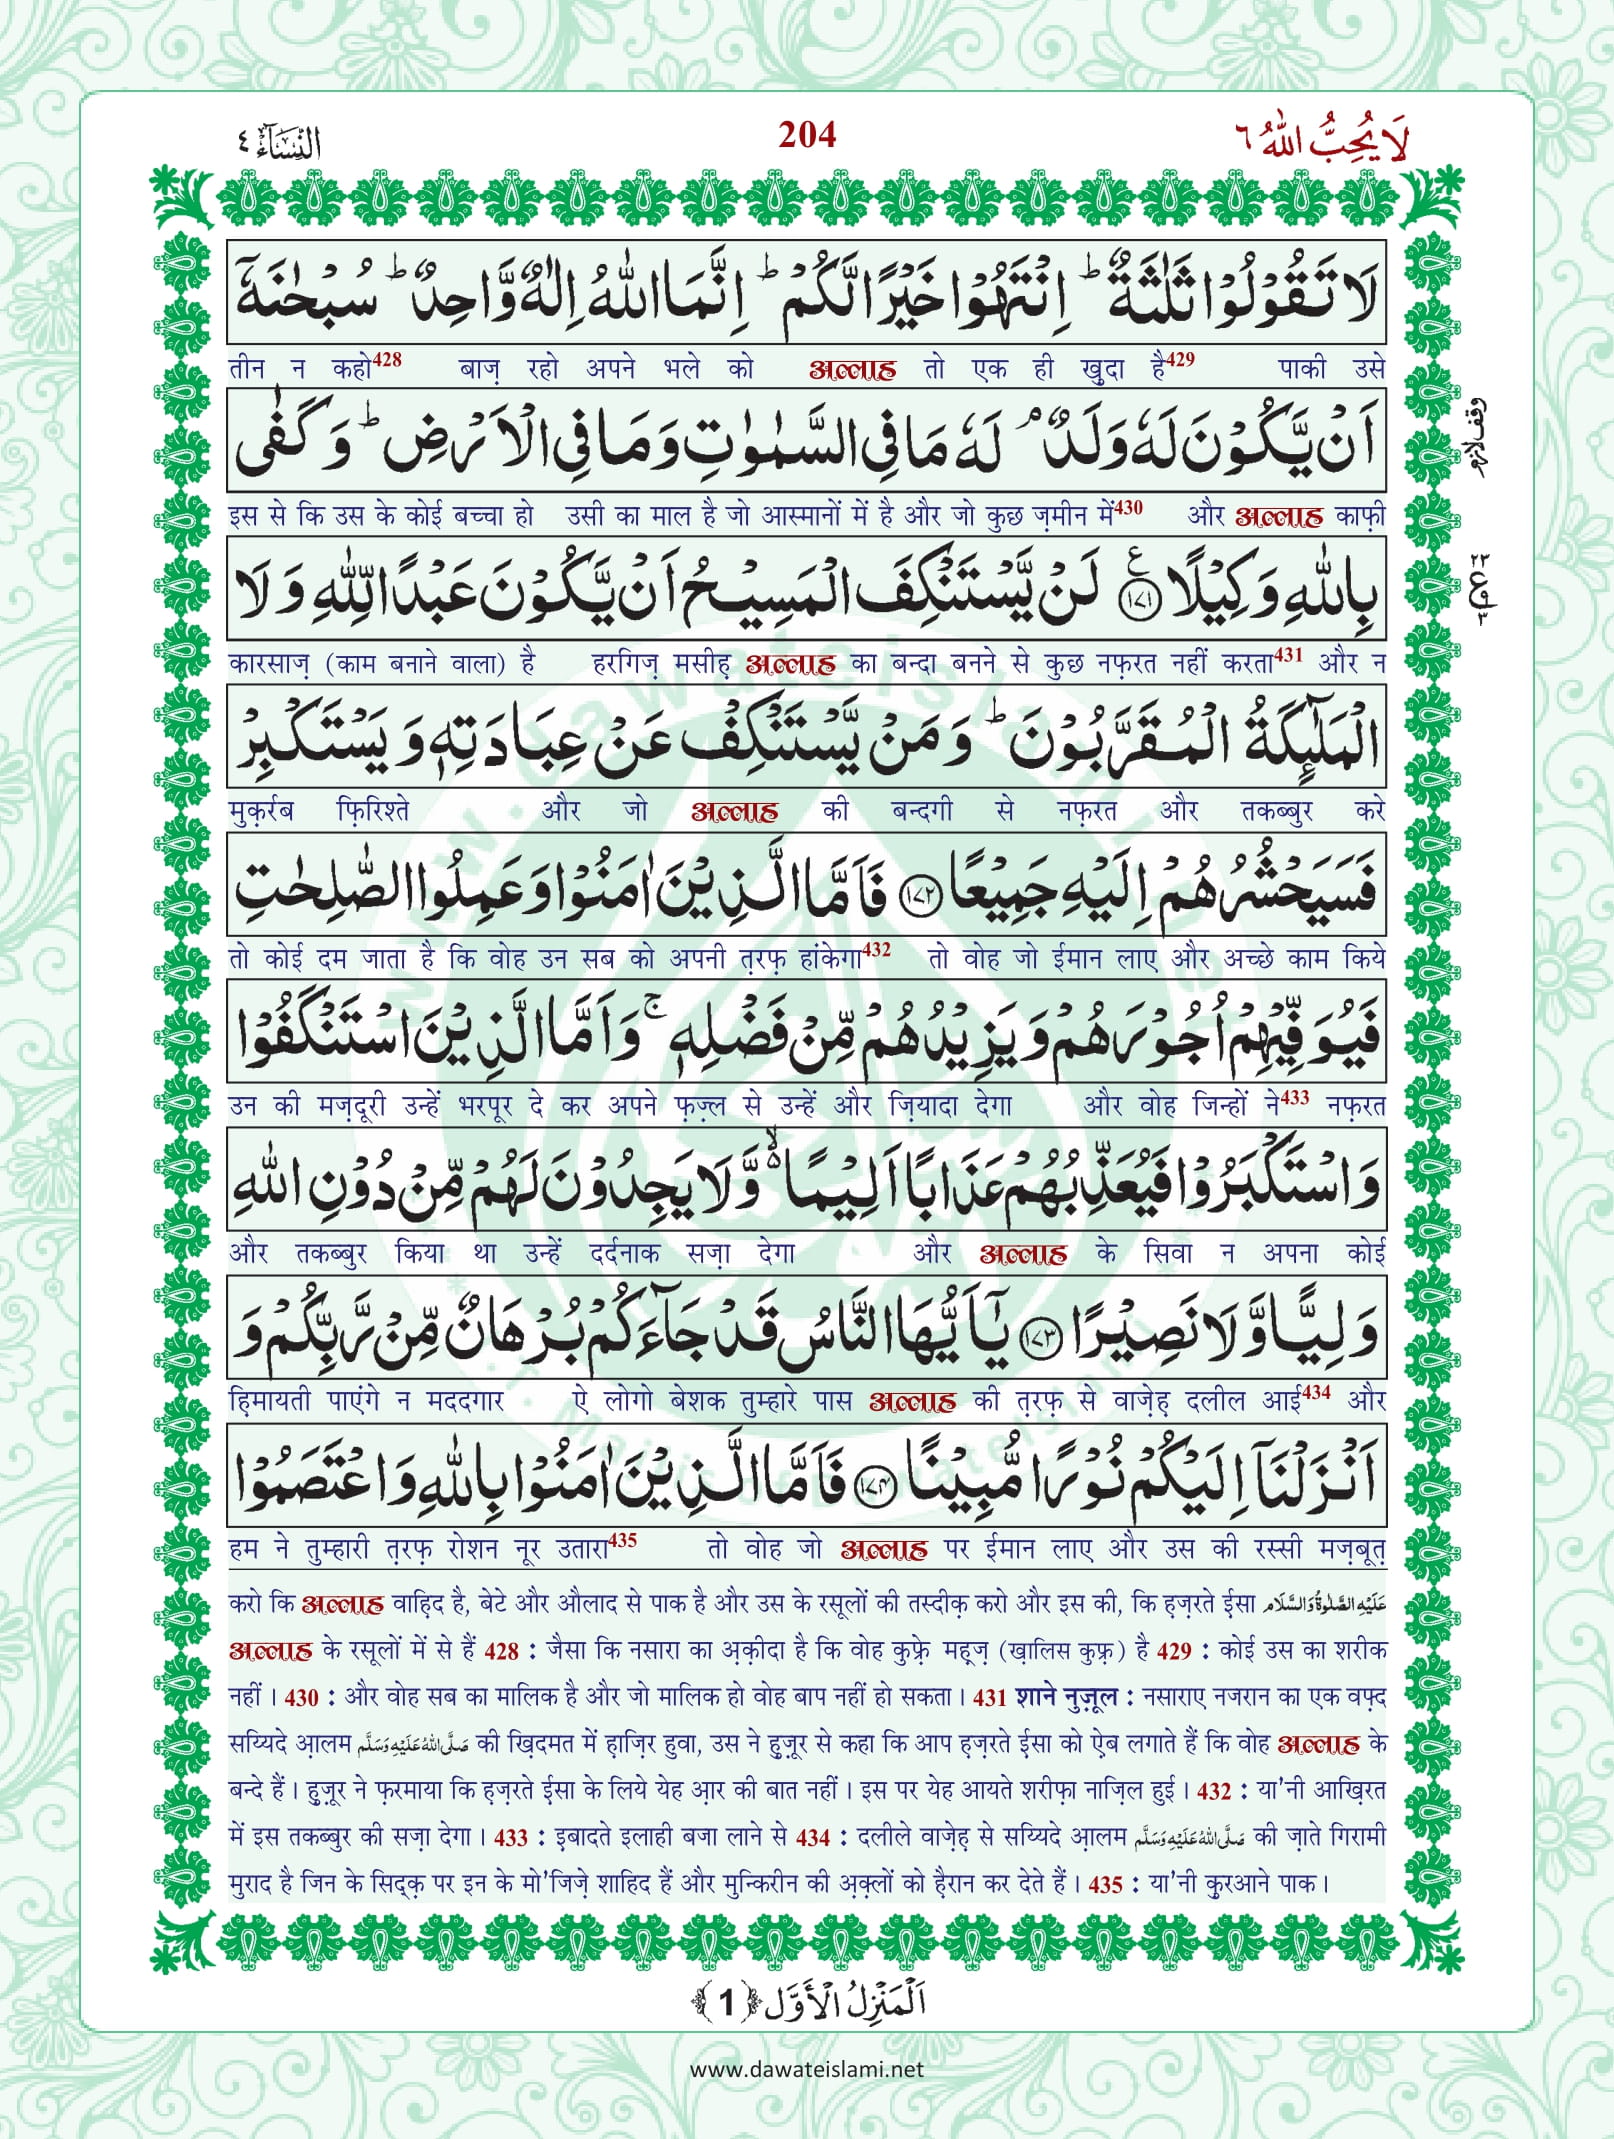 النِّسَآءُ ٤ 204 لَا يُحِبُّ اللّٰهُ ٦
لَا تَقُوْلُوْا ثَلٰثَةٌ ؕ اِنْتَهُوْا خَيْرًا لَّكُمْ ؕ اِنَّمَا اللّٰهُ اِلٰهٌ وَّاحِدٌ ؕ سُبْحٰنَهٗۤ
तीन न कहो428 बाज़ रहो अपने भले को अल्लाह तो एक ही ख़ुदा है429 पाकी उसे
اَنْ يَّكُوْنَ لَهٗ وَلَدٌ ۘ لَهٗ مَا فِي السَّمٰوٰتِ وَمَا فِي الْاَرْضِ ؕ وَكَفٰى
وقف لازم
इस से कि उस के कोई बच्चा हो उसी का माल है जो आस्मानों में है और जो कुछ ज़मीन में430 और अल्लाह काफ़ी
بِاللّٰهِ وَكِيْلًا ﴿۱۷۱﴾ لَنْ يَّسْتَنْكِفَ الْمَسِيْحُ اَنْ يَّكُوْنَ عَبْدًا لِّلّٰهِ وَلَا
कारसाज़ (काम बनाने वाला) है हरगिज़ मसीह़ अल्लाह का बन्दा बनने से कुछ नफ़रत नहीं करता431 और न
الْمَلٰٓىِٕكَةُ الْمُقَرَّبُوْنَ ؕ وَمَنْ يَّسْتَنْكِفْ عَنْ عِبَادَتِهٖ وَيَسْتَكْبِرْ
मुक़र्रब फ़िरिश्ते और जो अल्लाह की बन्दगी से नफ़रत और तकब्बुर करे
فَسَيَحْشُرُهُمْ اِلَيْهِ جَمِيْعًا ﴿۱۷۲﴾ فَاَمَّا الَّذِيْنَ اٰمَنُوْا وَعَمِلُوا الصّٰلِحٰتِ
तो कोई दम जाता है कि वोह उन सब को अपनी त़रफ़ हांकेगा432 तो वोह जो ईमान लाए और अच्छे काम किये
فَيُوَفِّيْهِمْ اُجُوْرَهُمْ وَيَزِيْدُهُمْ مِّنْ فَضْلِهٖ ۚ وَاَمَّا الَّذِيْنَ اسْتَنْكَفُوْا
उन की मज़दूरी उन्हें भरपूर दे कर अपने फ़ज़्ल से उन्हें और ज़ियादा देगा और वोह जिन्हों ने433 नफ़रत
وَاسْتَكْبَرُوْا فَيُعَذِّبُهُمْ عَذَابًا اَلِيْمًا ۙ۬ وَّلَا يَجِدُوْنَ لَهُمْ مِّنْ دُوْنِ اللّٰهِ
और तकब्बुर किया था उन्हें दर्दनाक सज़ा देगा और अल्लाह के सिवा न अपना कोई
وَلِيًّا وَّلَا نَصِيْرًا ﴿۱۷۳﴾ يٰۤاَيُّهَا النَّاسُ قَدْ جَآءَكُمْ بُرْهَانٌ مِّنْ رَّبِّكُمْ وَ
ह़िमायती पाएंगे न मददगार ऐ लोगो बेशक तुम्हारे पास अल्लाह की त़रफ़ से वाज़ेह़ दलील आई434 और
اَنْزَلْنَاۤ اِلَيْكُمْ نُوْرًا مُّبِيْنًا ﴿۱۷۴﴾ فَاَمَّا الَّذِيْنَ اٰمَنُوْا بِاللّٰهِ وَاعْتَصَمُوْا
हम ने तुम्हारी त़रफ़ रोशन नूर उतारा435 तो वोह जो अल्लाह पर ईमान लाए और उस की रस्सी मज़बूत़
करो कि अल्लाह वाह़िद है, बेटे और औलाद से पाक है और उस के रसूलों की तस्दीक़ करो और इस की, कि ह़ज़रते ईसा عَلَيْهِ الصَّلٰوةُ وَالسَّلَام
अल्लाह के रसूलों में से हैं 428 : जैसा कि नसारा का अ़क़ीदा है कि वोह कुफ़्रे मह़्ज़ (ख़ालिस कुफ़्र) है 429 : कोई उस का शरीक
नहीं । 430 : और वोह सब का मालिक है और जो मालिक हो वोह बाप नहीं हो सकता । 431 शाने नुज़ूल : नसाराए नजरान का एक वफ़्द
सय्यिदे आ़लम صَلَّى اللّٰهُ عَلَيْهِ وَسَلَّم की ख़िदमत में ह़ाज़िर हुवा, उस ने हु़ज़ूर से कहा कि आप ह़ज़रते ईसा को ऐब लगाते हैं कि वोह अल्लाह के
बन्दे हैं । हु़ज़ूर ने फ़रमाया कि ह़ज़रते ईसा के लिये येह आ़र की बात नहीं । इस पर येह आयते शरीफ़ा नाज़िल हुई । 432 : या'नी आख़िरत
में इस तकब्बुर की सज़ा देगा । 433 : इ़बादते इलाही बजा लाने से 434 : दलीले वाज़ेह़ से सय्यिदे आ़लम صَلَّى اللّٰهُ عَلَيْهِ وَسَلَّم की ज़ाते गिरामी
मुराद है जिन के सिद्क़ पर इन के मो'जिज़े शाहिद हैं और मुन्किरीन की अ़क़्लों को ह़ैरान कर देते हैं । 435 : या'नी कुरआने पाक ।
اَلْمَنْزِلُ الْاَوَّل ﴿1﴾
www.dawateislami.net